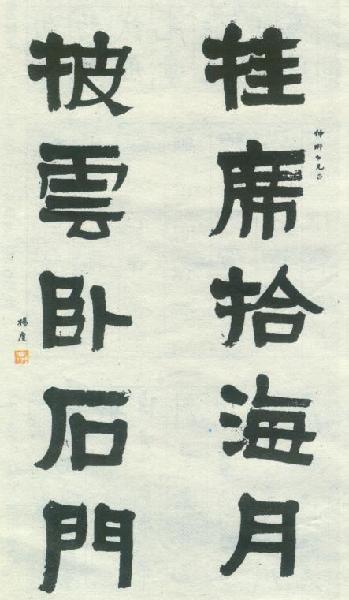 挂席拾海月
披雲卧石門
楊度